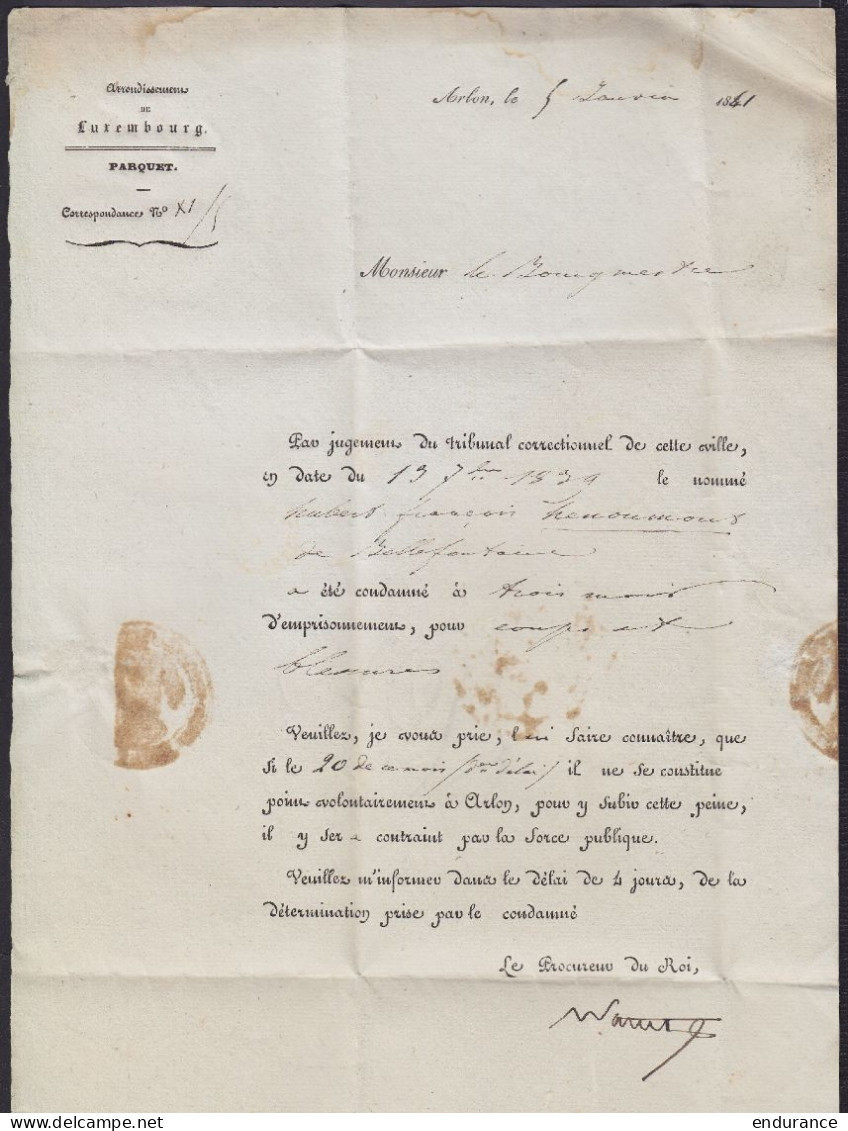 Arrondissement
DE
Luxembourg.
PARQUET.
Correspondance No XI/5
Arlon, le 5 Janvier 1841
Monsieur le Bourgmestre
Par jugement du tribunal correctionnel de cette ville,
en date du 13 7bre 1839 le nommé
hubert françois henoumont
de Bellefontaine
a été condamné à trois mois
d'emprisonnement, pour coups et
blessures
Veuillez, je vous prie, lui faire connaître, que
si le 20 de ce mois (der délai) il ne se constitue
point volontairement à Arlon, pour y subir cette peine,
il y sera contraint par la force publique.
Veuillez m'informer dans le délai de 4 jours, de la
détermination prise par le condamné
Le Procureur du Roi,
www.delcampe.net
endurance